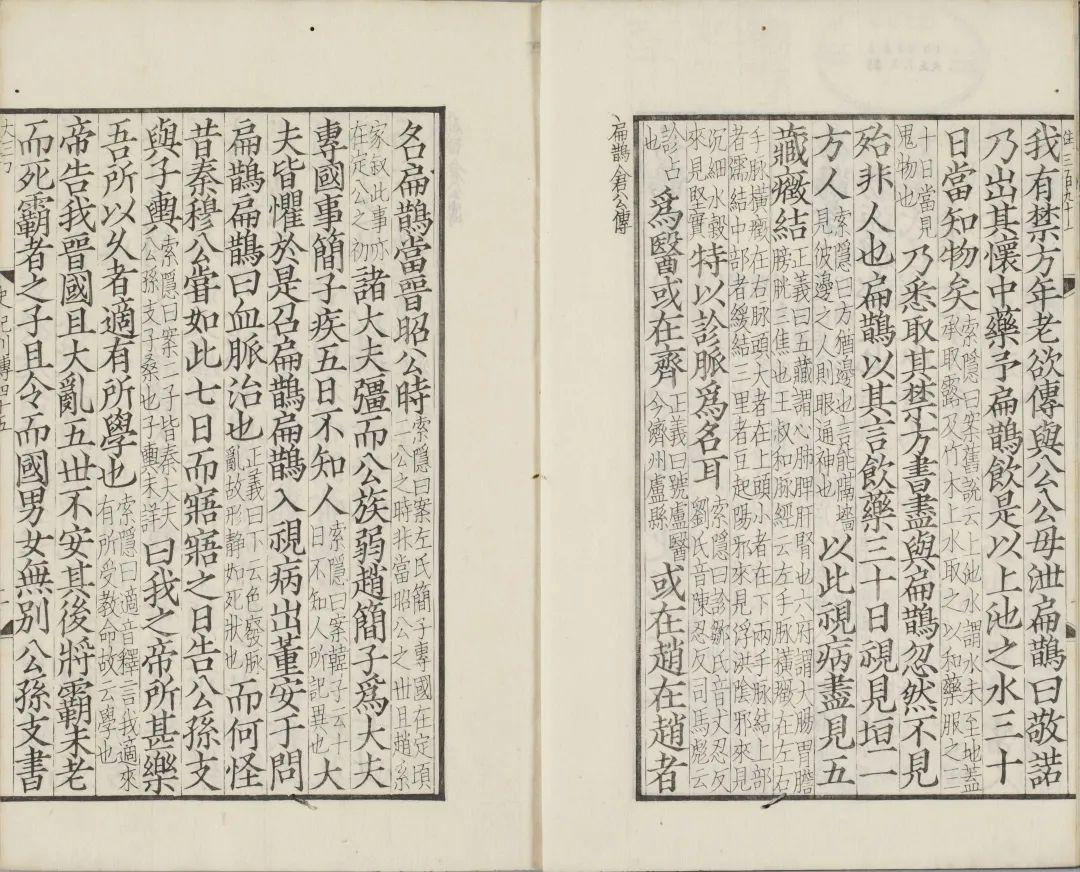 我有禁方年老欲傳與公公毋泄扁鵲曰敬諾
乃出其懷中藥予扁鵲飲是以上池之水三十
日當知物矣索隱曰案舊說云上池水謂水未至地蓋承取露及竹木上水取之以和藥服之三
十日當見鬼物也乃悉取其禁方書盡與扁鵲忽然不見
殆非人也扁鵲以其言飲藥三十日視見垣一
方人索隱曰方猶邊也言能隔墻見彼邊之人則眼通神也以此視病盡見五
藏癥結正義曰五藏謂心肺脾肝腎也六府謂大腸胃膽膀胱三焦也王叔和脈經云左手脈橫癥在左右
手脈橫癥在右脈頭大者在上頭小者在下兩手脈結上部者濡結中部者緩結三里者豆起陽邪來見浮洪陰邪來見
沉細水穀來見堅實特以診脈爲名耳索隱曰診鄒氏音丈忍反劉氏音陳忍反司馬彪云
診占也爲醫或在齊正義曰號盧醫今濟州盧縣或在趙在趙者
扁鵲倉公傳
名扁鵲當晉昭公時索隱曰案左氏簡子專國在定頃二公之時非當昭公之世且趙系
家叙此事亦在定公之初諸大夫彊而公族弱趙簡子爲大夫
專國事簡子疾五日不知人索隱曰案韓子云十日不知人所記異也大
夫皆懼於是召扁鵲扁鵲入視病出董安于問
扁鵲扁鵲曰血脈治也正義曰下云色廢脈亂故形静如死狀也而何怪
昔秦穆公甞如此七日而寤寤之日告公孫支
與子輿索隱曰案二子皆秦大夫公孫支子桑也子輿未詳曰我之帝所甚樂
吾所以久者適有所學也索隱曰適音釋言我適來有所受教命故云學也
帝告我晉國且大亂五世不安其後將霸未老
而死霸者之子且令而國男女無別公孫支書